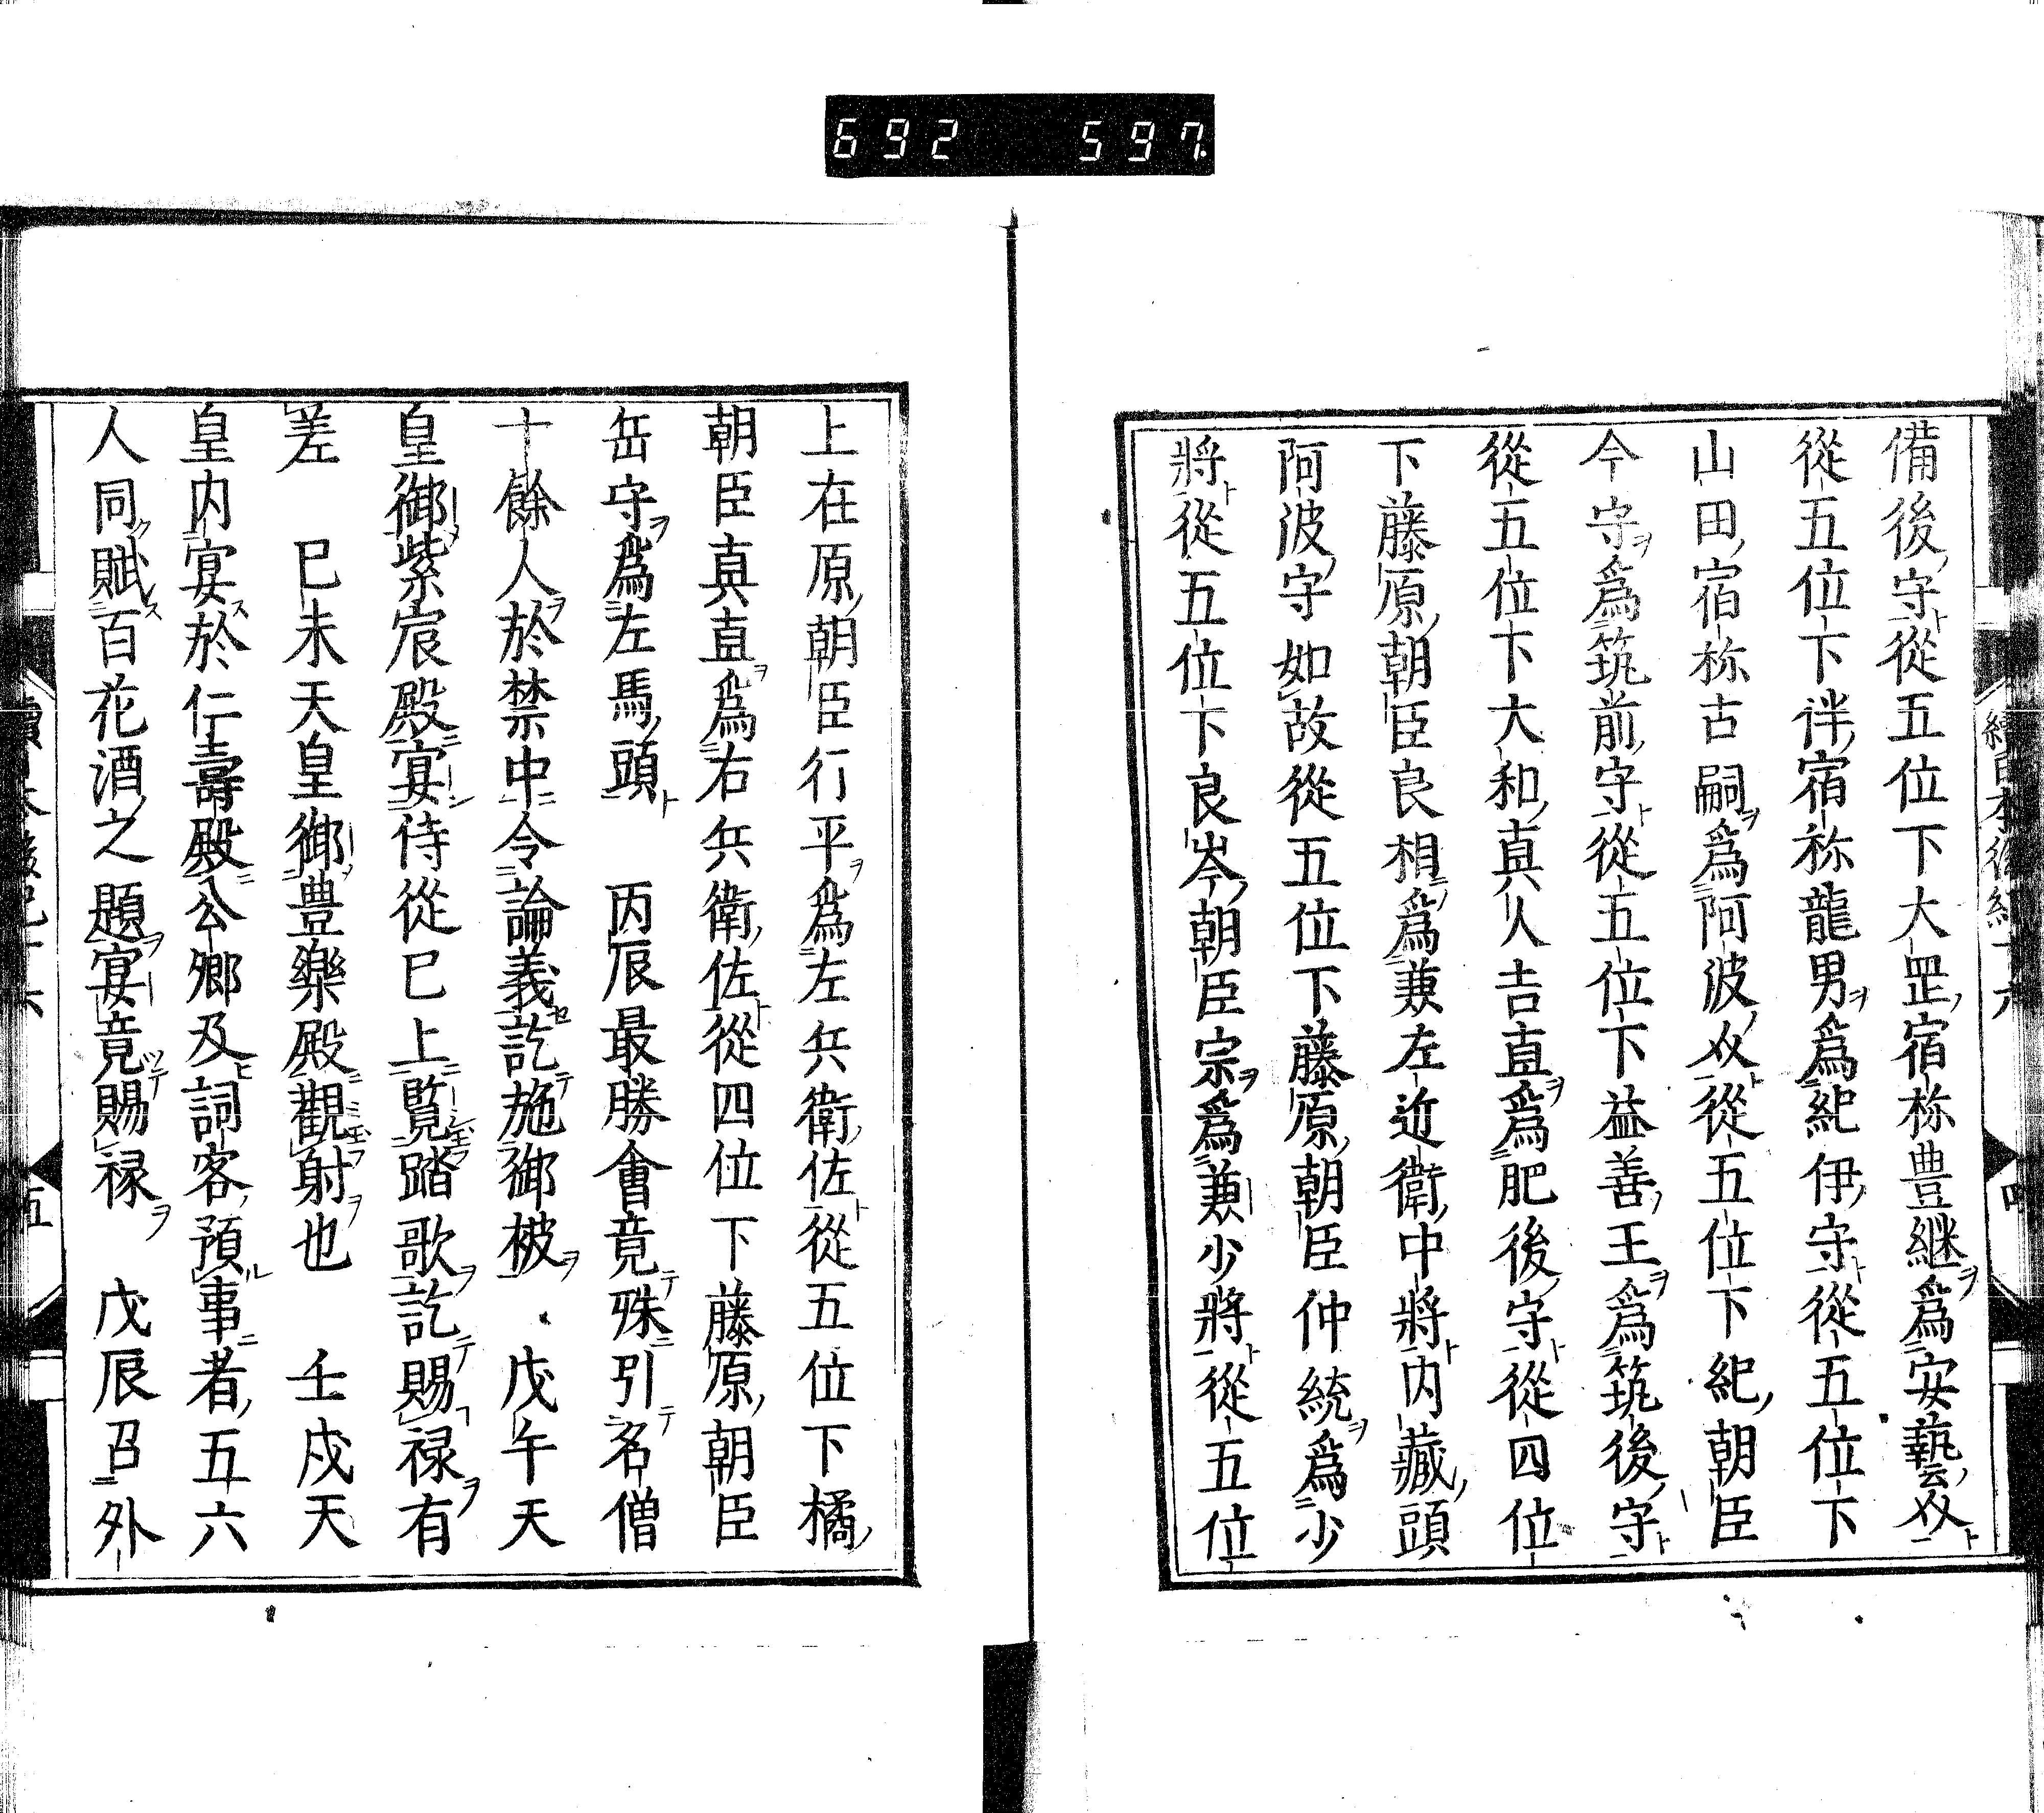 692 597
備後守從五位下大罡宿祢豊継爲安藝守從五位下
從五位下伴宿祢龍男爲紀伊守從五位下
山田宿祢古嗣爲阿波从從五位下紀朝臣
今守爲筑前守從五位下益善王爲筑後守
從五位下大和真人吉直爲肥後守從四位
下藤原朝臣良相爲兼左近衛中將内藏頭
阿波守如故從五位下藤原朝臣仲統爲少
將從五位下良岑朝臣宗爲兼少將從五位
上在原朝臣行平爲左兵衛佐從五位下橘
朝臣真直爲右兵衛佐從四位下藤原朝臣
岳守爲左馬頭 丙辰最勝會竟殊引名僧
十餘人於禁中令論義訖施御被 戊午天
皇御紫宸殿宴侍從已上覧踏歌訖賜禄有
差 巳未天皇御豊樂殿觀射也 壬戌天
皇内宴於仁壽殿公卿及詞客預事者五六
人同賦百花酒之題宴竟賜禄 戊辰召外